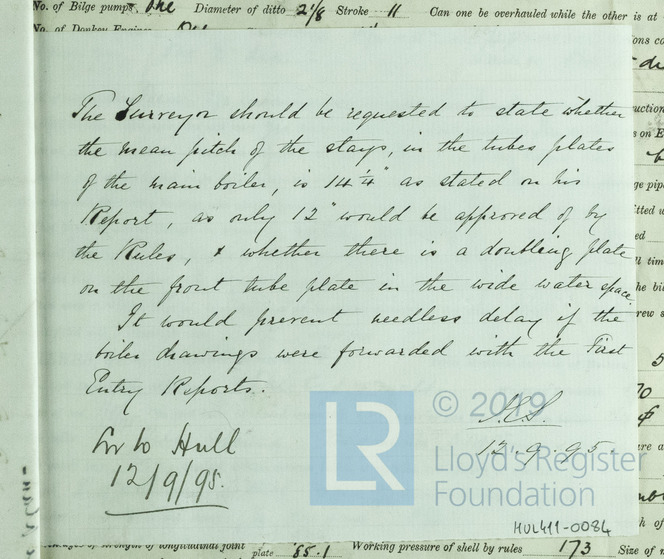 No. of Bilge pumps. One Diameter of ditto 2 1/8 Stroke 11 Can one be overhauled while the other is at
No. of Donkey Engines
The Surveyor should be requested to state whether
the mean pitch of the stays, in the tubes plates
of the main boiler, is 14 1/4" as stated on his
Report, as only 12" would be approved of by
the Rules, & whether there is a doubling plate
on the front tube plate in the wide water space.
It would prevent needless delay if the
boiler drawings were forwarded with the First
Entry Reports.
12.9.95
Lr to Hull
12/9/95.
© 2019
LR
Lloyd's Register
Foundation
HUL411-0084
of strength of longitudinal joint plate 85.1 Working pressure of shell by rules 173 Size of